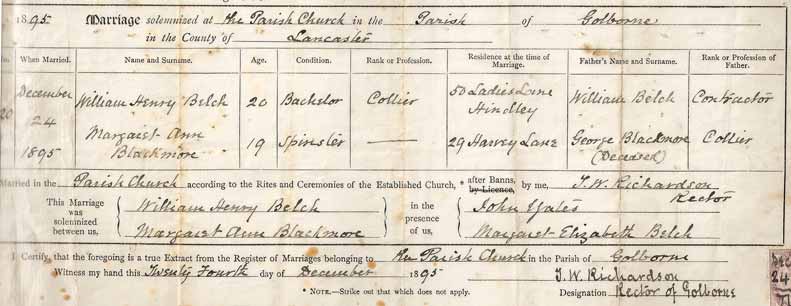 1895 Marriage solemnized at the Parish Church in the Parish of Golborne
in the County of Lancaster
No. When Married. Name and Surname. Age. Condition. Rank or Profession. Residence at the time of Marriage. Father's Name and Surname. Rank or Profession of Father.
20 December 24 1895 William Henry Belch 20 Bachelor Collier 50 Ladies Lane Hindley William Belch Contractor
Margaret Ann Blackmore 19 Spinster —— 29 Harvey Lane George Blackmore (Deceased) Collier
Married in the Parish Church according to the Rites and Ceremonies of the Established Church, * after Banns, by Licence, by me, T. W. Richardson
Rector
This Marriage was solemnized between us, William Henry Belch Margaret Ann Blackmore in the presence of us, John Yates Margaret Elizabeth Belch
I Certify, that the foregoing is a true Extract from the Register of Marriages belonging to the Parish Church in the Parish of Golborne
Witness my hand this Twenty Fourth day of December 1895 T. W. Richardson
* NOTE.—Strike out that which does not apply. Designation Rector of Golborne
Dec
24